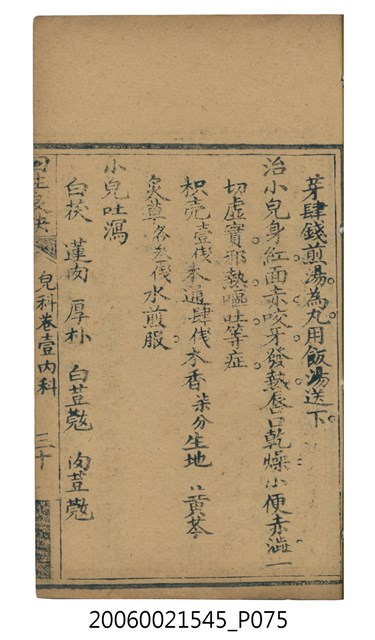 芽肆錢煎湯為丸用飯湯送下
治小兒身紅面赤咬牙發熱唇口乾燥小便赤澁一
切虛實邪熱嘔吐等症
枳壳壹伐木通肆伐木香柒分生地 黃芩
炙草各叁伐水煎服
小兒吐瀉
白茯 蓮肉 厚朴 白荳蔲 肉荳蔲
回生良訣 兒科卷壹內科 三十
20060021545_P075